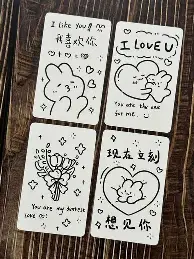 I like you
我喜欢你
I LOVE U
You are the one
for me.
You are my sweetest
love
现在立刻
想见你